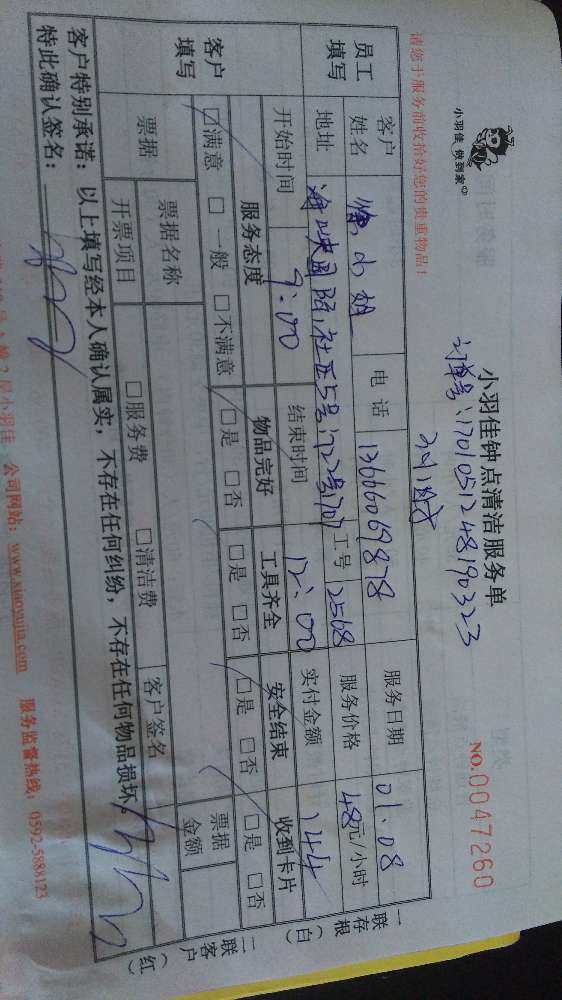 小羽佳 做到家
小羽佳钟点清洁服务单
NO.0047260
订单号:1701051248190323
请您于服务前收拾好您的贵重物品!
3小时
员工填写
客户姓名
小姐
电话
13666069878
服务日期
01.08
地址
海峡国际社区5号1722号707
工号
2568
服务价格
48元/小时
开始时间
9:00
结束时间
12:00
实付金额
144
客户填写
服务态度
物品完好
工具齐全
安全结束
收到卡片
□满意 □一般 □不满意
□是 □否
□是 □否
□是 □否
□是 □否
票据
票据名称
客户签名
票据金额
开票项目
□服务费 □清洁费
客户特别承诺:以上填写经本人确认属实,不存在任何纠纷,不存在任何物品损坏。
特此确认签名:
一联存根(白)
二联客户(红)
2层小羽佳 公司网站:www.xiaoyujia.com 服务监督热线:0592-5888123